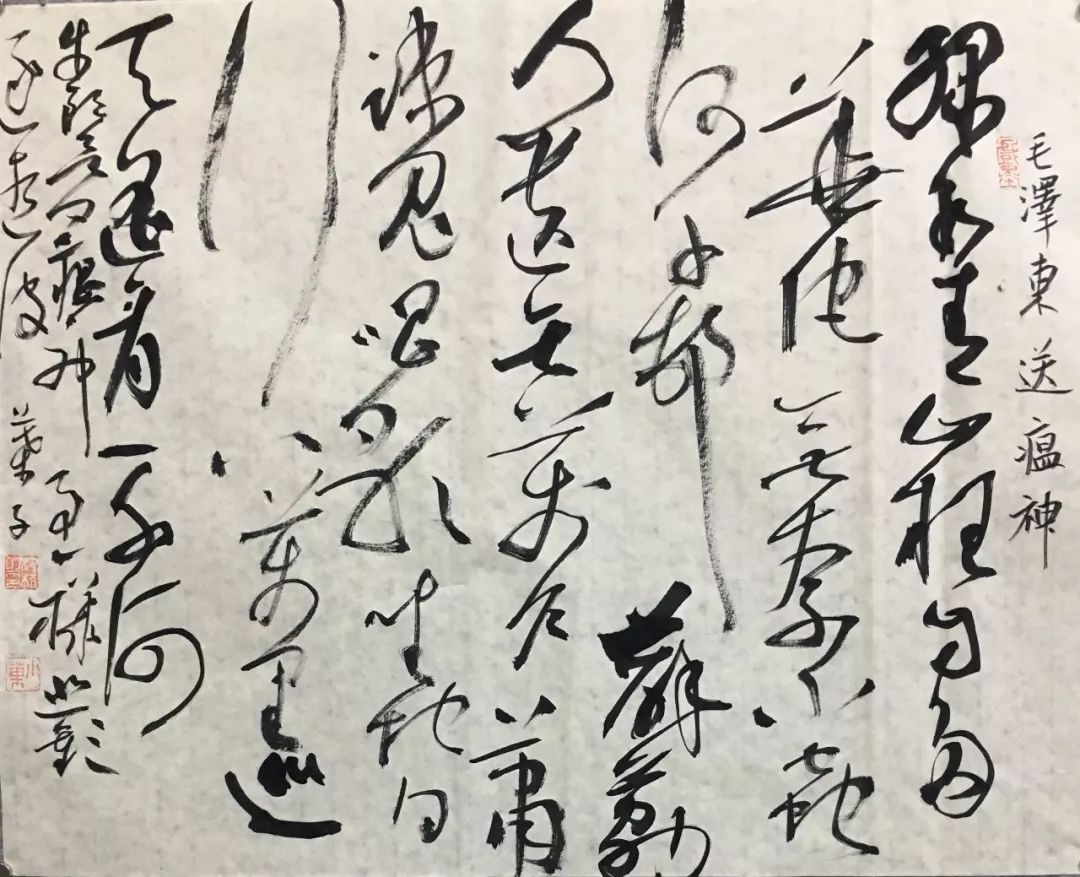 毛澤東送瘟神
綠水青山枉自多
華佗無奈小蟲
何千邨薜荔
人遺矢萬戶蕭
疎鬼唱歌坐地日
行八萬里巡
天遙看一千河
牛郎欲問瘟神事一樣悲歡
逐逝波 葉子